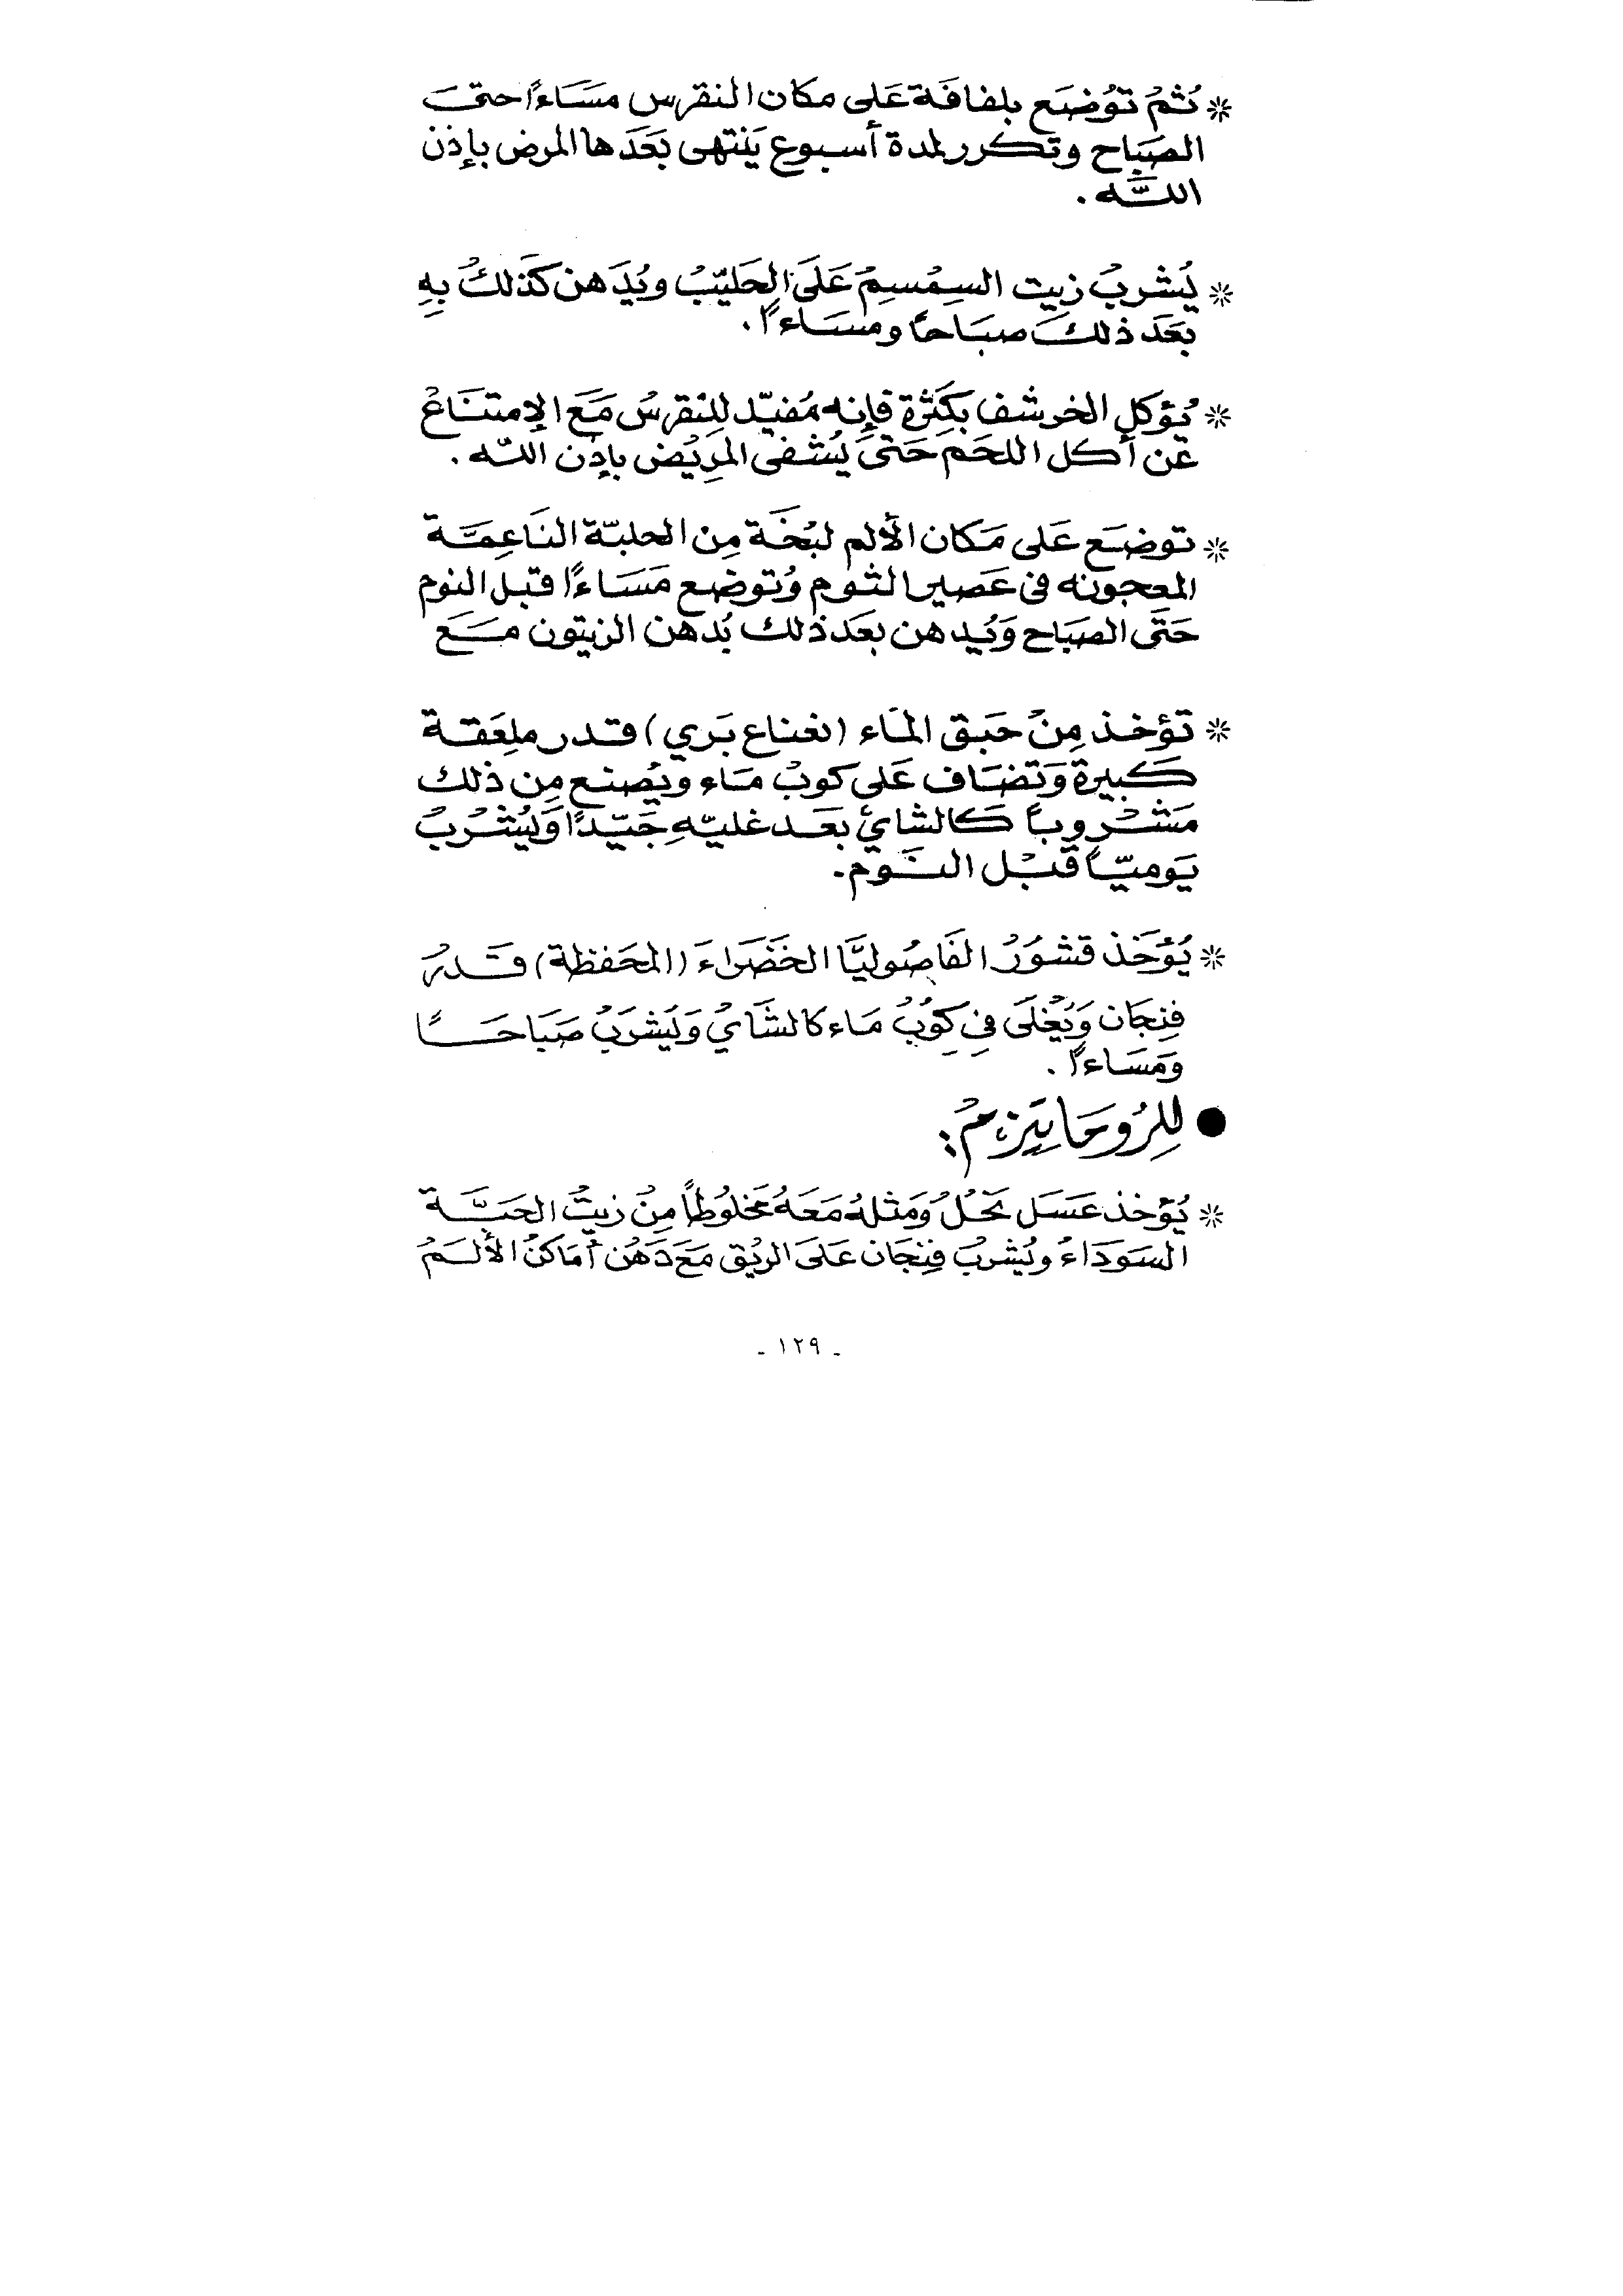 * ثم توضع بلفافة على مكان النقرس مساءً حتى
الصباح وتكرر لمدة أسبوع ينتهى بعدها المرض بإذن
الله .
* يشرب زيت السمسم على الحليب ويدهن كذلك به
بعد ذلك صباحًا ومساءً .
* يؤكل الخرشف بكثرة فإنه مفيد للنقرس مع الإمتناع
عن أكل اللحم حتى يشفى المريض بإذن الله .
* توضع على مكان الألم لبخة من الحلبة الناعمة
المعجونه فى عصير الثوم وتوضع مساءً قبل النوم
حتى الصباح ويدهن بعد ذلك بدهن الزيتون مع
* تؤخذ من حبق الماء (نعناع بري) قدر ملعقة
كبيرة وتضاف على كوب ماء ويصنع من ذلك
مشروبًا كالشاي بعد غليه جيدًا ويشرب
يوميًا قبل النوم .
* يؤخذ قشور الفاصوليا الخضراء (المحفظة) قدر
فنجان ويغلى في كوب ماء كالشاي ويشرب صباحًا
ومساءً .
● للروماتيزم :
* يؤخذ عسل نحل ومثله معه مخلوطًا من زيت الحبة
السوداء ويشرب فنجان على الريق مع دهن أماكن الألم
- ١٢٩ -